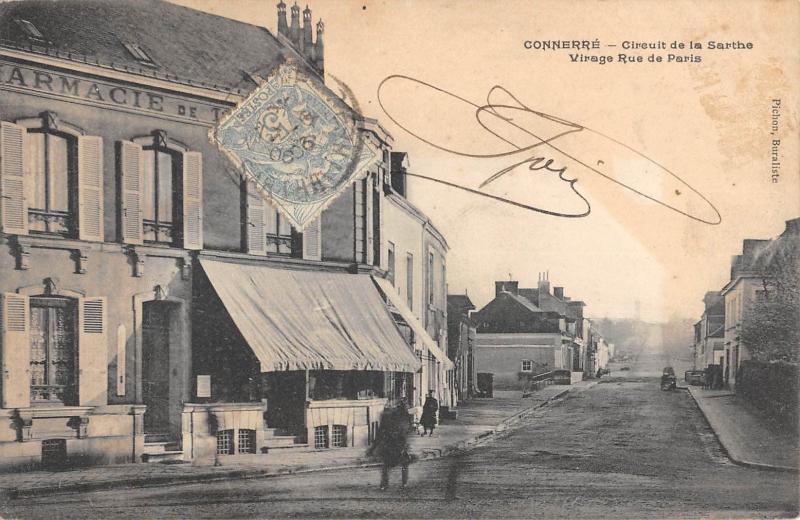 CONNERRÉ — Circuit de la Sarthe
Virage Rue de Paris
Pichon, Buraliste
ARMACIE DE